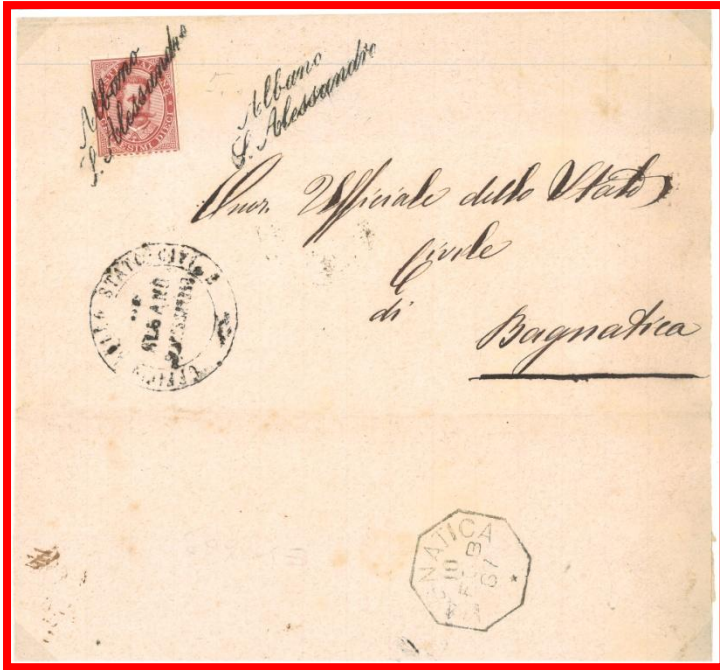 Albano
S. Alessandro
Albano
S. Alessandro
Onor. Ufficiale dello Stato
Civile
di
Bagnatica
UFFICIO DELLO STATO CIVILE
ALBANO
CENTESIMI DIECI
BAGNATICA
10
FEB
81